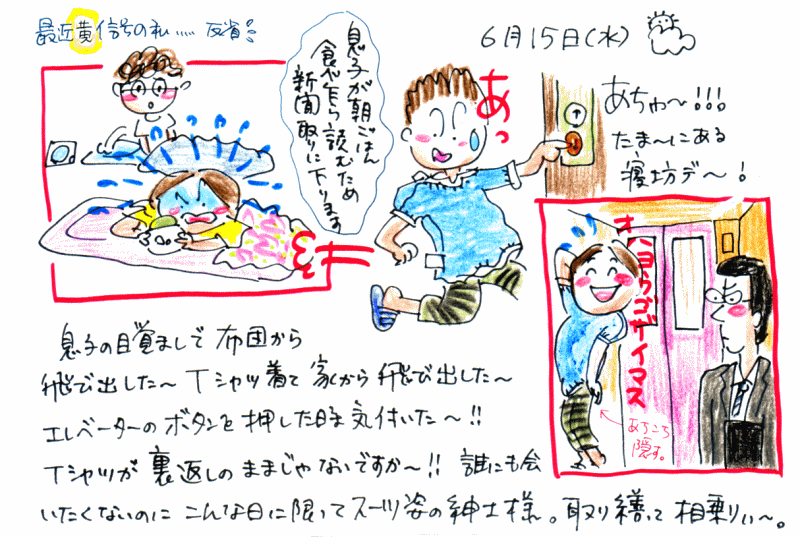 最近黄信号の私……反省!!
6月15日(水)
息子が朝ごはん
食べ乍ら読むため
新聞取りに下ります
あっ
あちゃ〜!!!
たま〜にある
寝坊デ〜!
オハヨウゴザイマス
あちこち
隠す。
息子の目覚ましで 布団から
飛び出した〜 Tシャツ着て 家から 飛び出した〜
エレベーターのボタンを 押した時 気付いた〜!!
Tシャツが 裏返しの ままじゃないですか〜!! 誰にも会
いたくないのに こんな日に限って スーツ姿の紳士様。取り繕って 相乗りぃ〜。